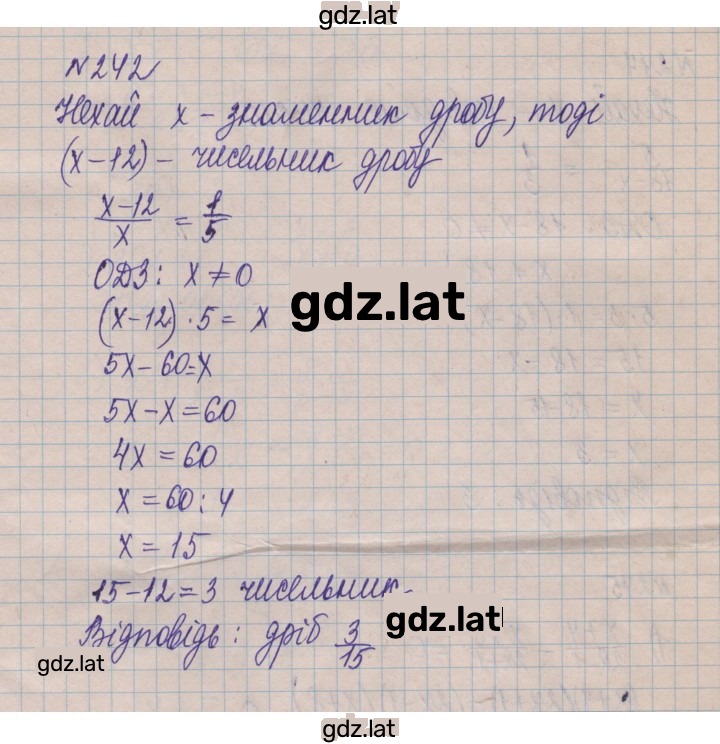 gdz.lat
№242
Нехай x – знаменник дробу, тоді
(x–12) – чисельник дробу
x–12/x = 1/5
ОДЗ: x ≠ 0
gdz.lat
(x–12)·5= x
5x–60=x
5x–x=60
4x=60
x=60:4
x=15
15–12=3 чисельник.
Відповідь: дріб 3/15
gdz.lat
gdz.lat
gdz.lat